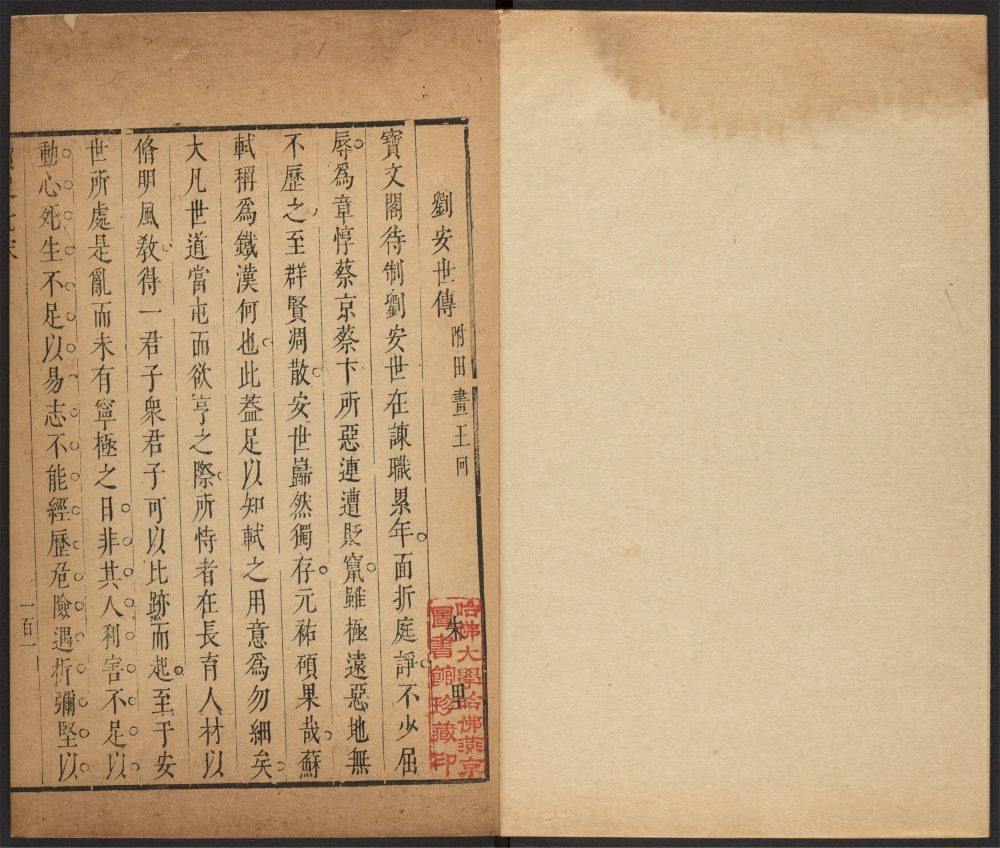 劉安世傳 附田晝王回 朱里
哈佛大學哈佛燕京
圖書館珍藏印
寶文閣待制劉安世在諫職累年面折庭諍不少屈
辱爲章惇蔡京蔡卞所惡連遭貶竄雖極遠惡地無
不歷之至群賢凋散安世巋然獨存元祐碩果哉蘇
軾稱爲鐵漢何也此蓋足以知軾之用意爲勿細矣
大凡世道當屯而欲亨之際所恃者在長育人材以
脩明風敎得一君子衆君子可以比跡而起至于安
世所處是亂而未有寧極之日非其人利害不足以
動心死生不足以易志不能經歷危險遇折彌堅以
一百一